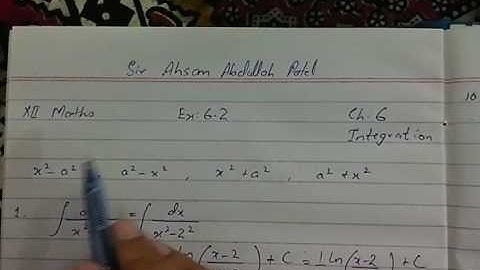 Sir Ahsan Abdullah Patel
XII Maths Ex: 6.2 Ch. 6
Integration
10
x² - a² a² - x² , x² + a² , a² + x²
1. ∫ = ∫ dx / x² - 2²
ln(x-2) + C = 1 ln(x-2) + C